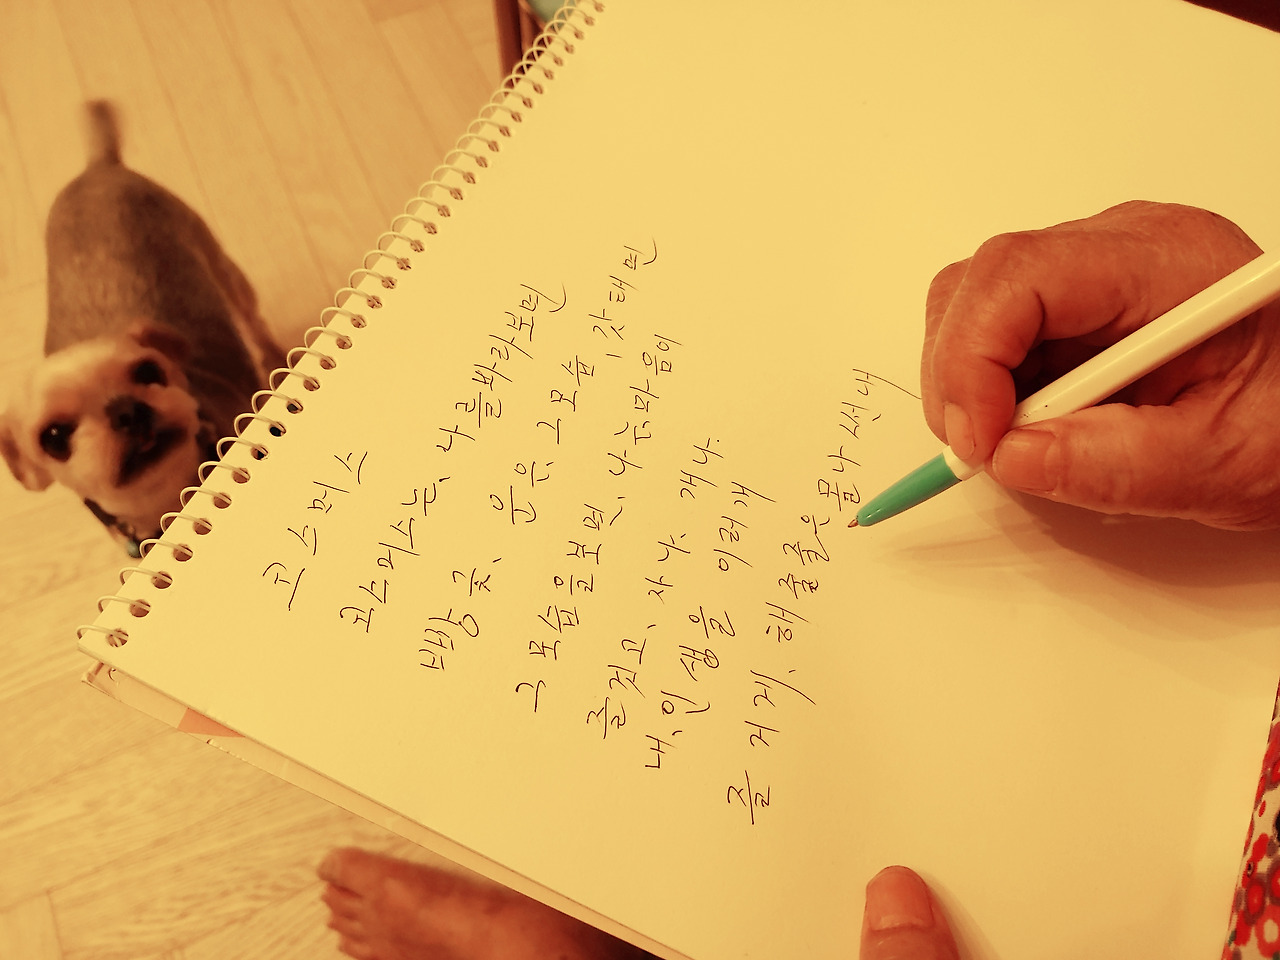 코스머스
코스머스는, 나를바라보면
빵긋, 운은, 그모습, 갓태면
그모습을보면, 나는마음이
즐겁고, 자나, 깨나.
내, 인생을 이러개
즐거게, 해줄줄은 몰나썬내